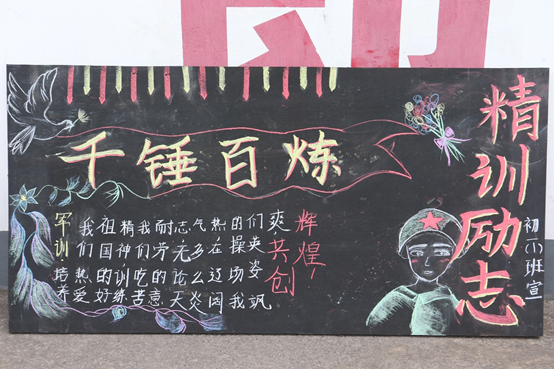 千锤百炼
军训培养
我们热爱
祖国的好
精神训练
我们吃苦
耐劳的意
志无论天
气多么炎
热在这阔
的操场我
们英姿飒
爽
共创
辉煌！
精训励志
班宣